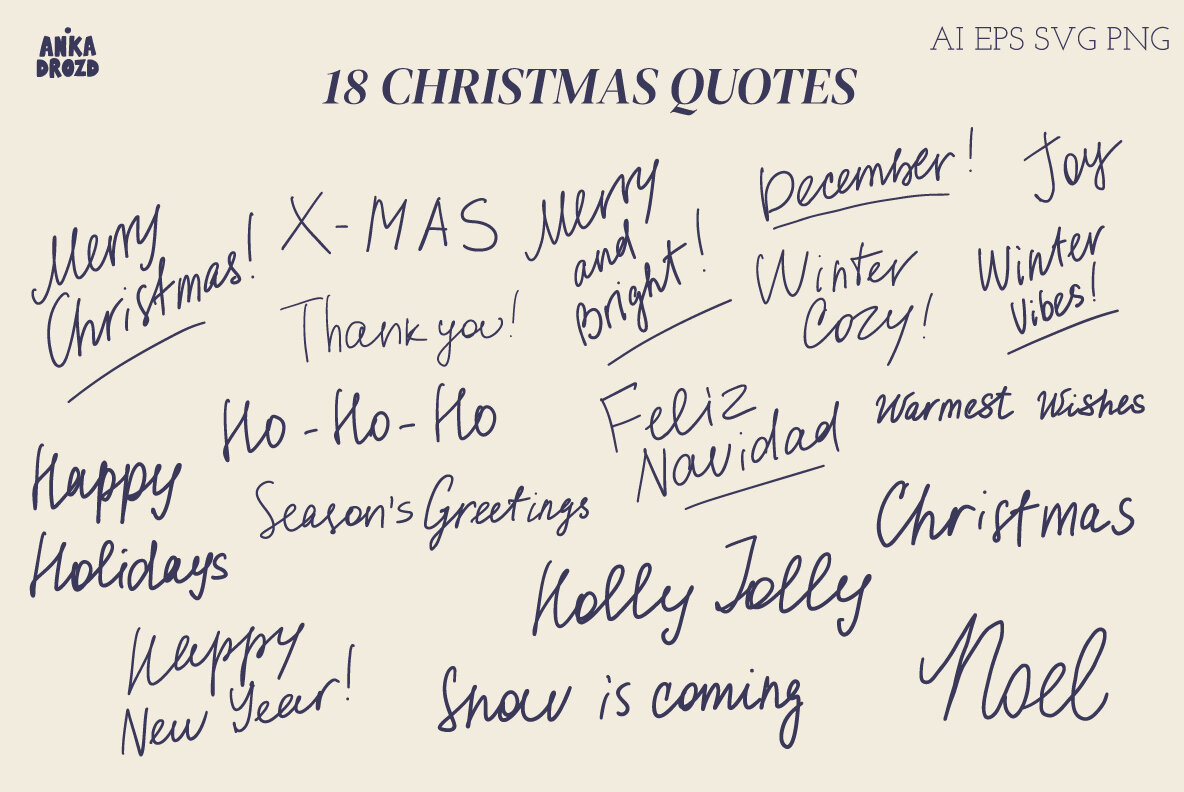 ANIKA
DROZD
AI EPS SVG PNG
18 CHRISTMAS QUOTES
Merry
Christmas!
X-MAS
Thank you!
Merry
and
Bright!
December!
Joy
Winter
Cozy!
Winter
Vibes!
Ho-Ho-Ho
Feliz
Navidad
Warmest Wishes
Happy
Holidays
Season's Greetings
Christmas
Holly Jolly
Happy
New Year!
Snow is coming
Noel